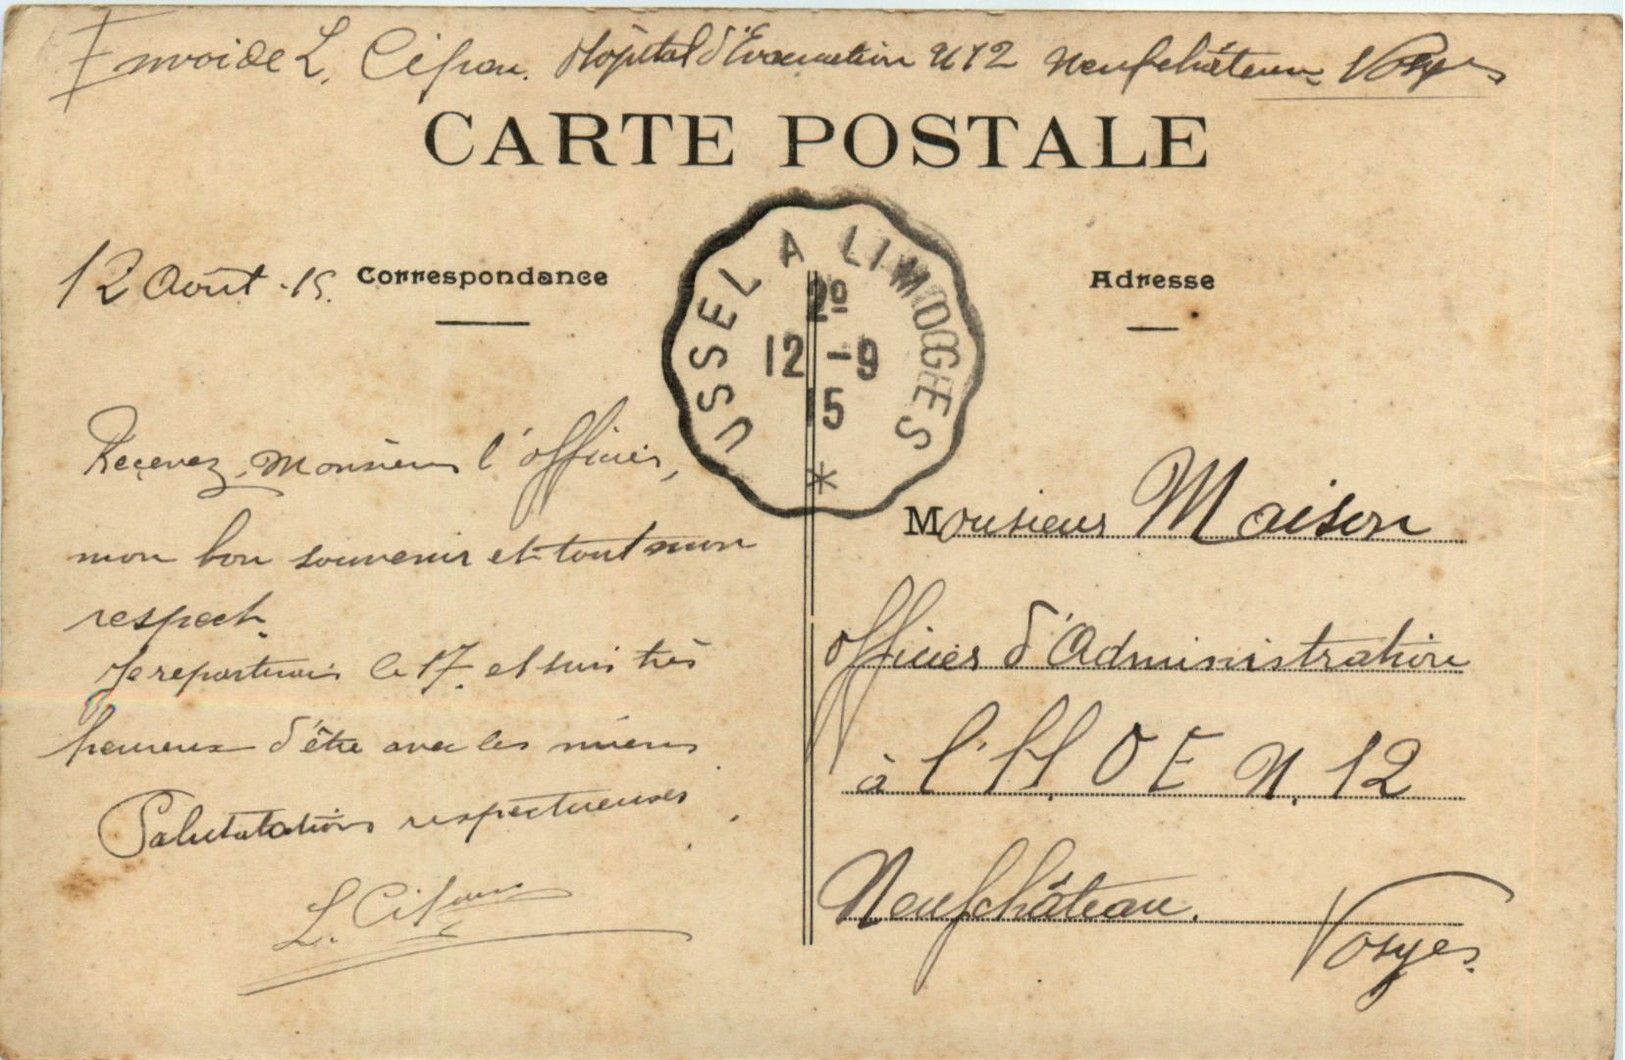 Envoi de L. Cifran. Hôpital d'Evacuation N 12 Neufchâteau Vosges
CARTE POSTALE
12 Août - 15. Correspondance
Adresse
USSEL A LIMOGES
2º
12 -9
15
*
Recevez, Monsieur l'officier,
mon bon souvenir et tout mon
respect.
Je repartirais le 17. et suis très
heureux d'être avec les miens
Salutatations respectueuses
L.
Monsieur Maison
officier d'Administration
à l'H. O E N. 12
Neufchâteau.
Vosges.